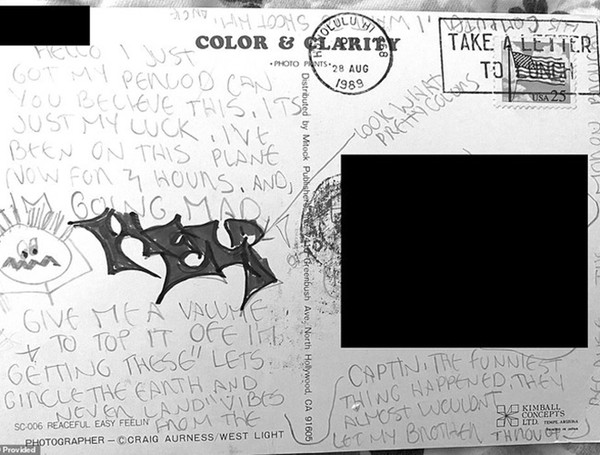 COLOR & CLARITY
• PHOTO PRINTS •
HONOLULU, HI
28 AUG
1989
TAKE A LETTER
TO LUNCH
USA 25
HELLO I JUST
GOT MY PERIOD CAN
YOU BELIEVE THIS, ITS
JUST MY LUCK, I'VE
BEEN ON THIS PLANE
NOW FOR 4 HOURS, AND,
I'M GOING MAD
GIVE ME A VALUME
+ TO TOP IT OFF I'M
GETTING THESE" LETS
CIRCLE THE EARTH AND
NEVER LAND" VIBES
FROM THE
CAPTIN, THE FUNNIEST
THING HAPPENED, THEY
ALMOST WOULDNT
LET MY BROTHER THROUGH
LOOK WHAT
PRETTY COLORS
Distributed by Mitock Publishers, Greenbush Ave., North Hollywood, CA 91605
SC-006 PEACEFUL EASY FEELIN'
PHOTOGRAPHER — © CRAIG AURNESS/WEST LIGHT
KIMBALL
CONCEPTS
LTD. TEMPE, ARIZONA
Provided